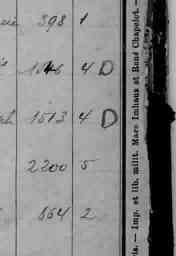 398 1
4 D
1513 4 D
2200 5
554 2
Imp. et lib. milit. Marc Imhaus et René Chapelot. —